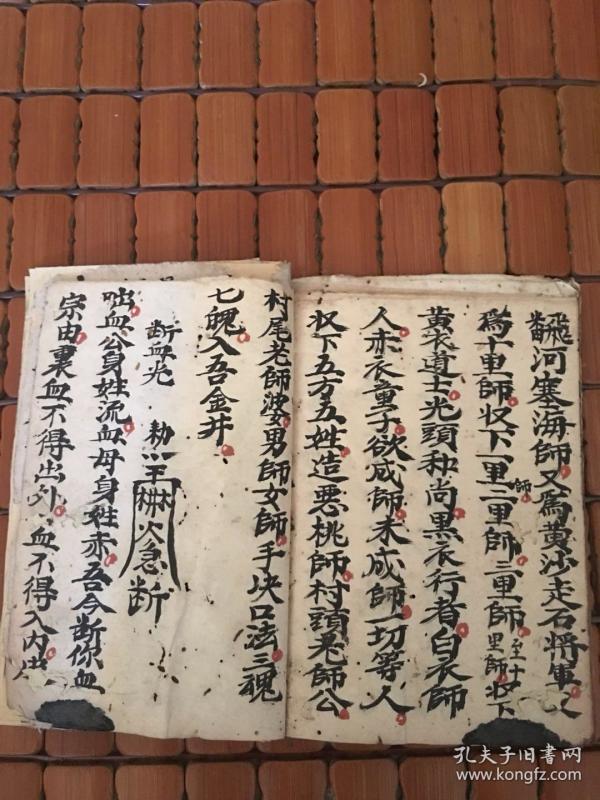 飛河塞海師又爲黄沙走石將軍又
爲十里師收下一里師二里師三里師至十里師收下
黄衣道士光頭和尚黑衣行者白衣師
人赤衣童子欲成師未成師一切等人
收下五方五姓造悪桃師村頭老師公
村尾老師婆男師女師手决口法三魂
七魄入吾金井
断血光 勅 火急断
咄血公身姓流血母身姓赤吾今断你血
宗由裏血不得出外血不得入内
孔夫子旧书网
www.kongfz.com